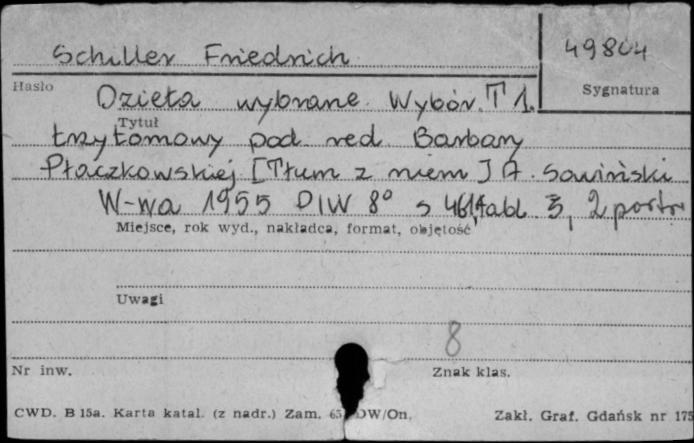 Schiller Friedrich
49804
Hasło
Sygnatura
Dzieła wybrane. Wybór. T 1.
Tytuł
trzytomowy pod red. Barbary
Płaczkowskiej [Tłum z niem] A. Sowiński
W-wa 1955 PIW 8° s 461, tabl. 3, 2 portr
Miejsce, rok wyd., nakładca, format, objętość
Uwagi
8
Nr inw.
Znak klas.
CWD. B 15a. Karta katal. (z nadr.) Zam. 65 DW/On.
Zakł. Graf. Gdańsk nr 175